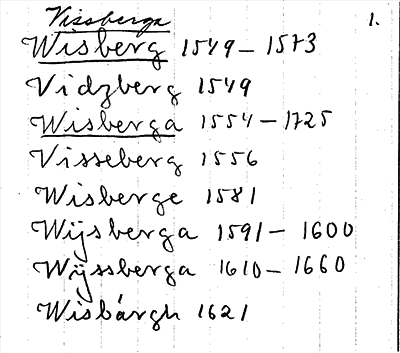 Vissberga 1.
Wisberg 1549-1573
Vidzberg 1549
Wisberga 1554-1725
Visseberg 1556
Wisberge 1581
Wijsberga 1591-1600
Wÿssberga 1610-1660
Wisbárgh 1621